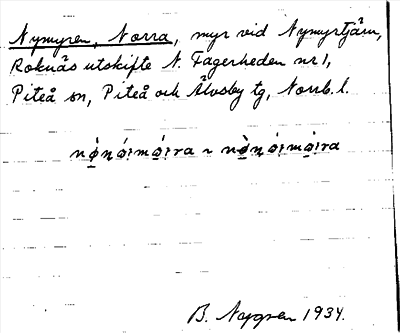 Nymyren, Norra, myr vid Nymyrtjärn,
Roknäs utskifte N. Fagerheden nr 1,
Piteå sn, Piteå och Älvsby tg, Norrb. l.
B. Nygren 1934.